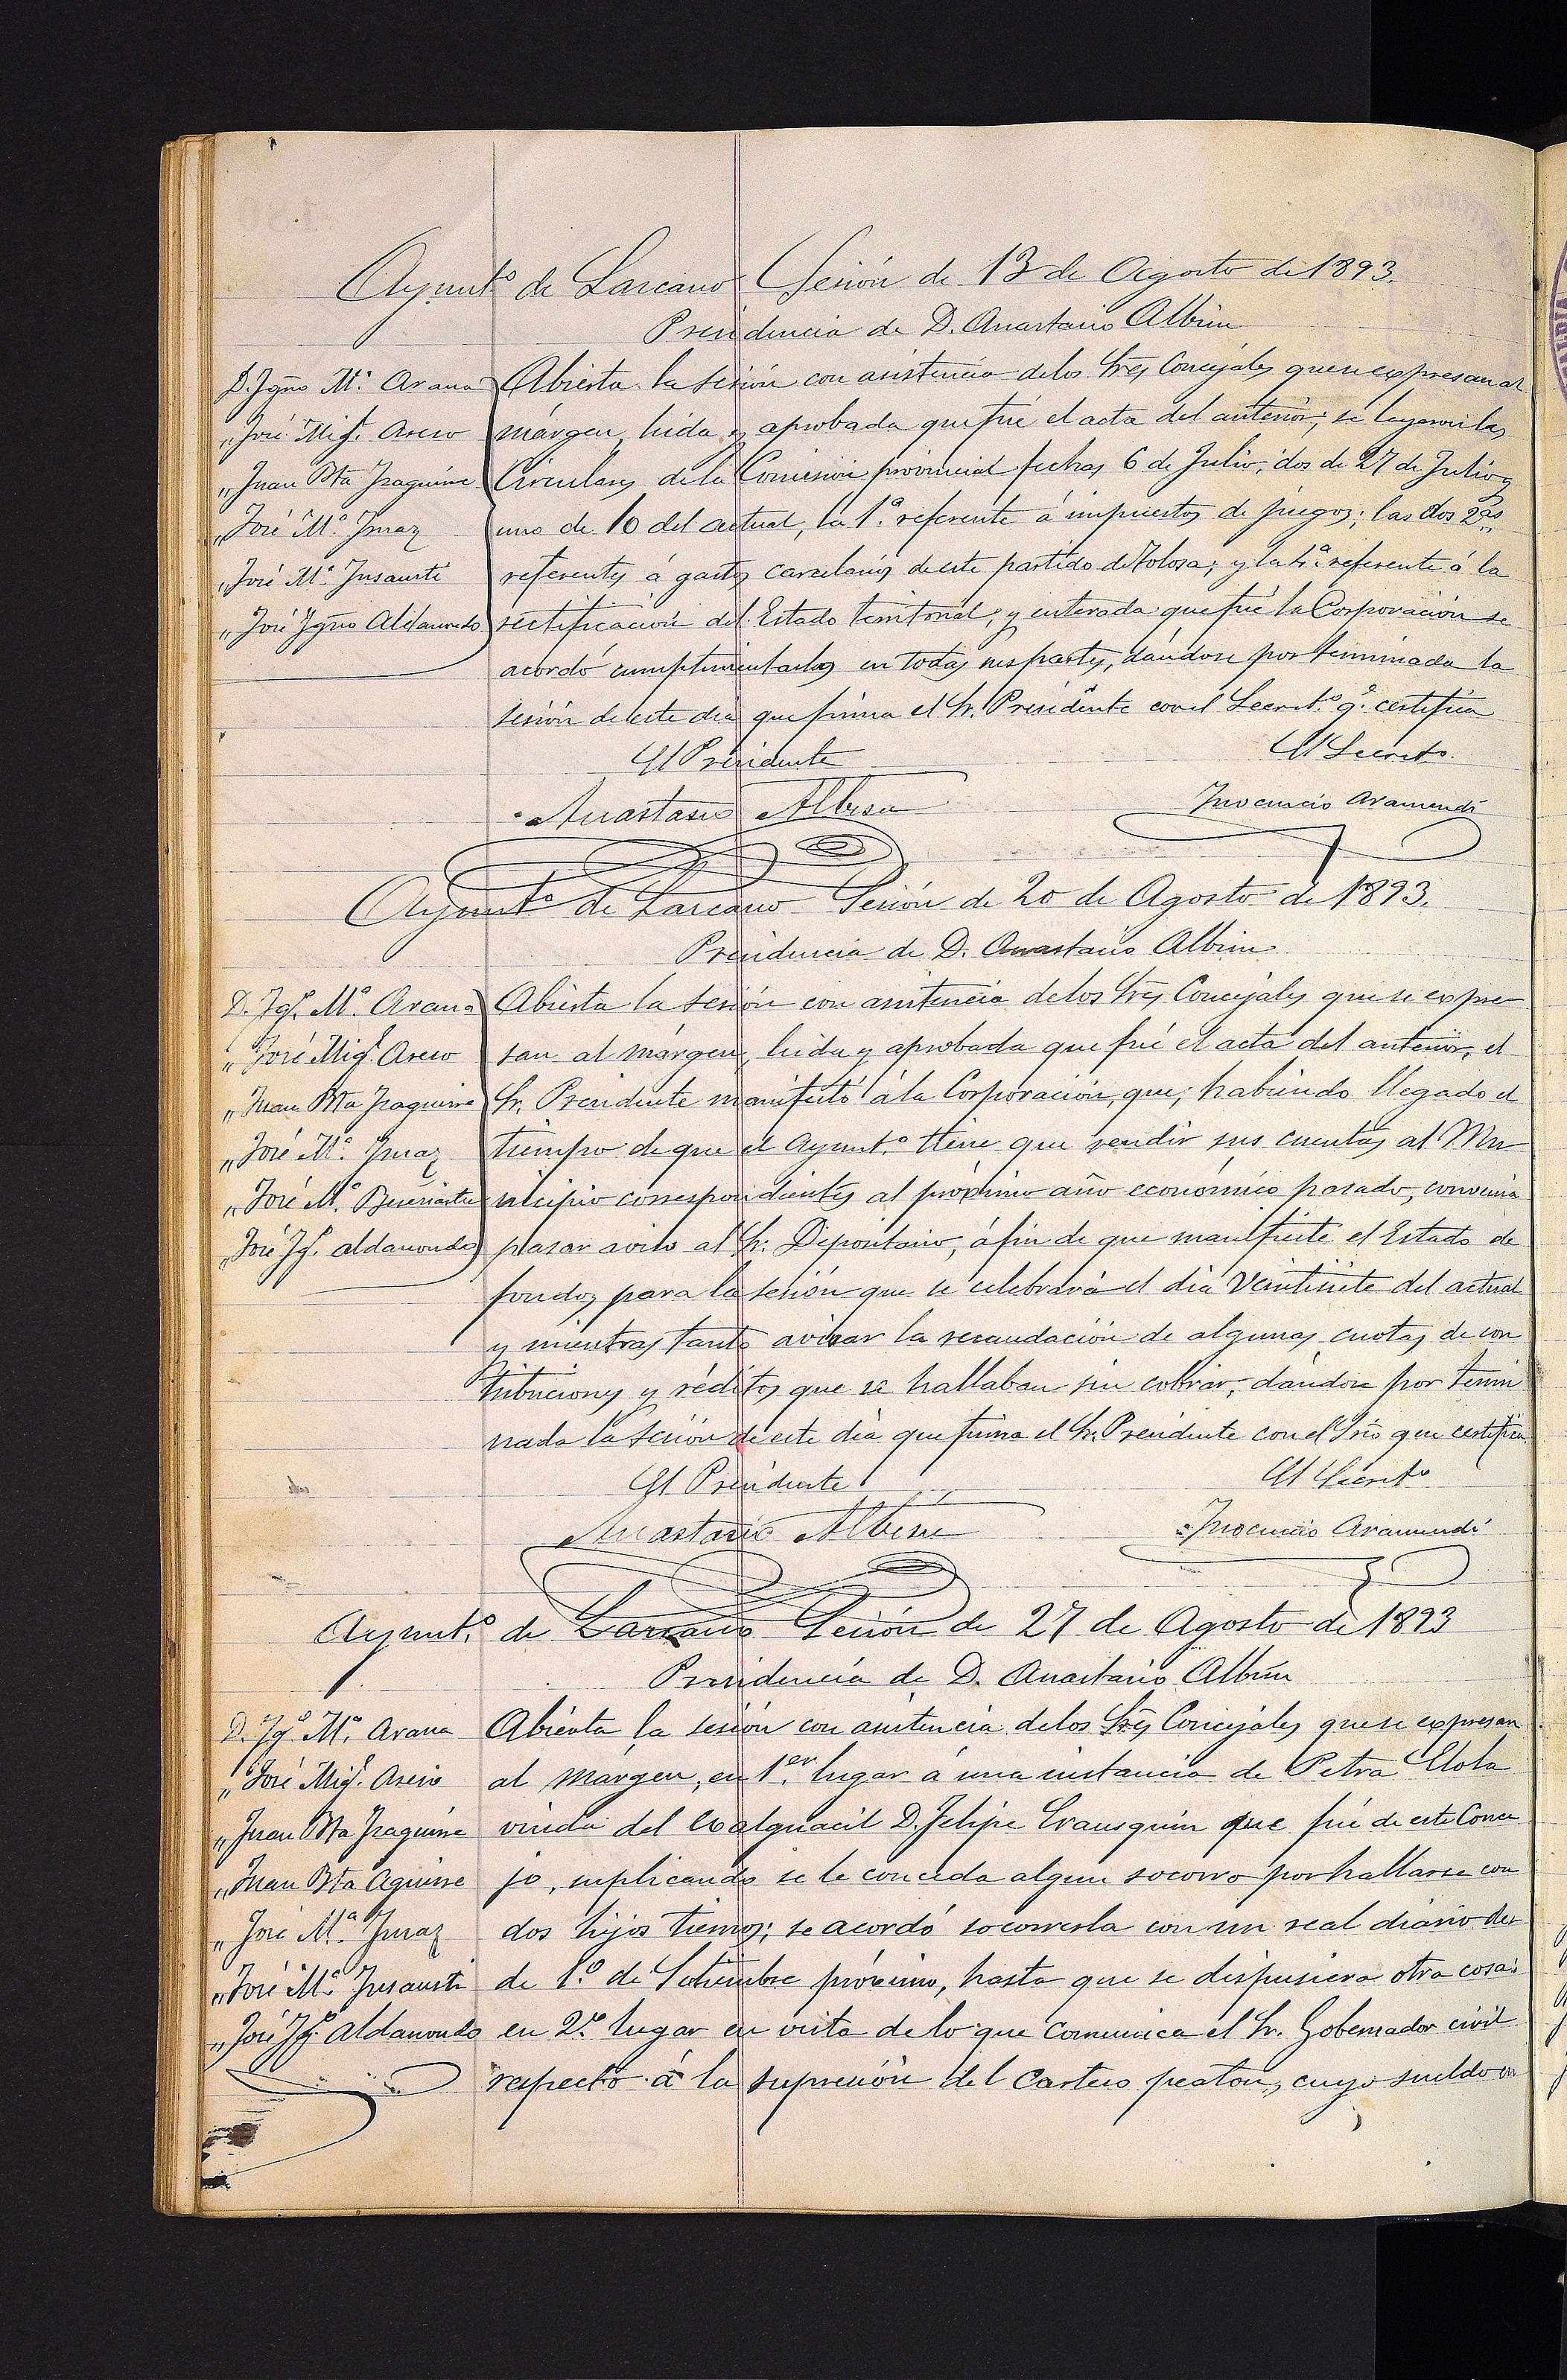 Ayunt.º de Lazcano Sesión de 13 de Agosto de 1893.
Presidencia de D. Anastasio Albisu
D. Jgño M.ª Arana
„ José Mig.l Aseso
„ Juan Bta Yzaguirre
„ José M.ª Ymaz
„ José M.ª Insausti
„ José Ygño Aldanondo
Abierta la sesión con asistencia de los Sres Concejales que se expresan al
márgen, leida y aprobada que fué el acta del anterior; se leyeron las
Circulares de la Comisión provincial fechas 6 de Julio, dos de 27 de Julio y
uno de 10 del actual, la 1.ª referente á impuestos de juegos; las dos 2.as
referentes á gastos carcelarios de este partido de Tolosa; y la 4.ª referente á la
rectificación del Estado territorial, y enterada que fué la Corporación se
acordó cumplimentarlos en todas sus partes, dándose por terminada la
sesión de este dia que firma el Sr. Presidente con el Secret.º q.e certifica
El Presidente El Secret.º
Anastasio Albisu Inocencio Aramendi
Ayunt.º de Lazcano Sesión de 20 de Agosto de 1893.
Presidencia de D. Anastasio Albisu
D. Jg.º M.ª Arana
„ José Mig.l Aseso
„ Juan Bta Yzaguirre
„ José M.ª Ymaz
„ José M.ª
„ José Jg.º Aldanondo
Abierta la sesión con asistencia de los Sres Concejales que se expre-
san al márgen, leida y aprobada que fué el acta del anterior, el
Sr. Presidente manifestó á la Corporación, que, habiendo llegado el
tiempo de que el Ayunt.º tiene que rendir sus cuentas al Mu-
nicipio correspondientes al próximo año económico pasado, convenia
pasar aviso al Sr. Depositario, á fin de que manifieste el Estado de
fondos para la sesión que se celebrará el dia veintisiete del actual
y mientras tanto avisar la recaudación de algunas cuotas de con
tribuciones y réditos que se hallaban sin cobrar; dándose por termi
nada la sesión de este dia que firma el Sr. Presidente con el Srio que certifica.
El Presidente El Secret.º
Anastasio Albisu Inocencio Aramendi
Ayunt.º de Lazcano Sesión de 27 de Agosto de 1893
Presidencia de D. Anastasio Albisu
D. Jg.º M.ª Arana
„ José Mig.l Aseso
„ Juan Bta Yzaguirre
„ Juan Bta Aguirre
„ José M.ª Ymaz
„ José M.ª Insausti
„ José Jg.º Aldanondo
Abierta la sesión con asistencia de los Sres Concejales que se expresan
al márgen, en 1.er lugar á una instancia de Petra Elola
viuda del exalguacil D. Felipe Erausquin que fué de este Conce
jo, suplicando se le conceda algun socorro por hallarse con
dos hijos tiernos; se acordó socorrerla con un real diario des
de 1.º de Setiembre próximo, hasta que se dispusiera otra cosa:
en 2.º lugar en vista de lo que comunica el Sr. Gobernador civil
respecto á la supresión del Cartero peaton, cuyo sueldo en